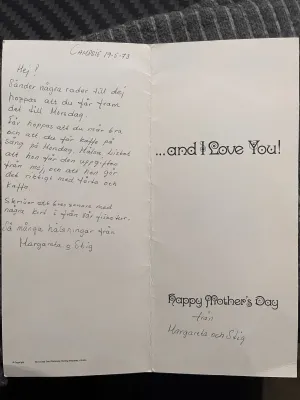 19-5-73
Hej!
Sänder några rader till dej
hoppas att du får fram
det till Morsdag
Får hoppas att du mår bra
och att du får kaffe på
säng på Mondag.
att han får den uppgiften
från mej, och att han gör
det riktigt med tårta och
kaffe.
Skriver ett brev senare med
några kort i från
så många hälsningar från
Margareta o Stig
...and I Love You!
Happy Mother's Day
från
Margareta och Stig